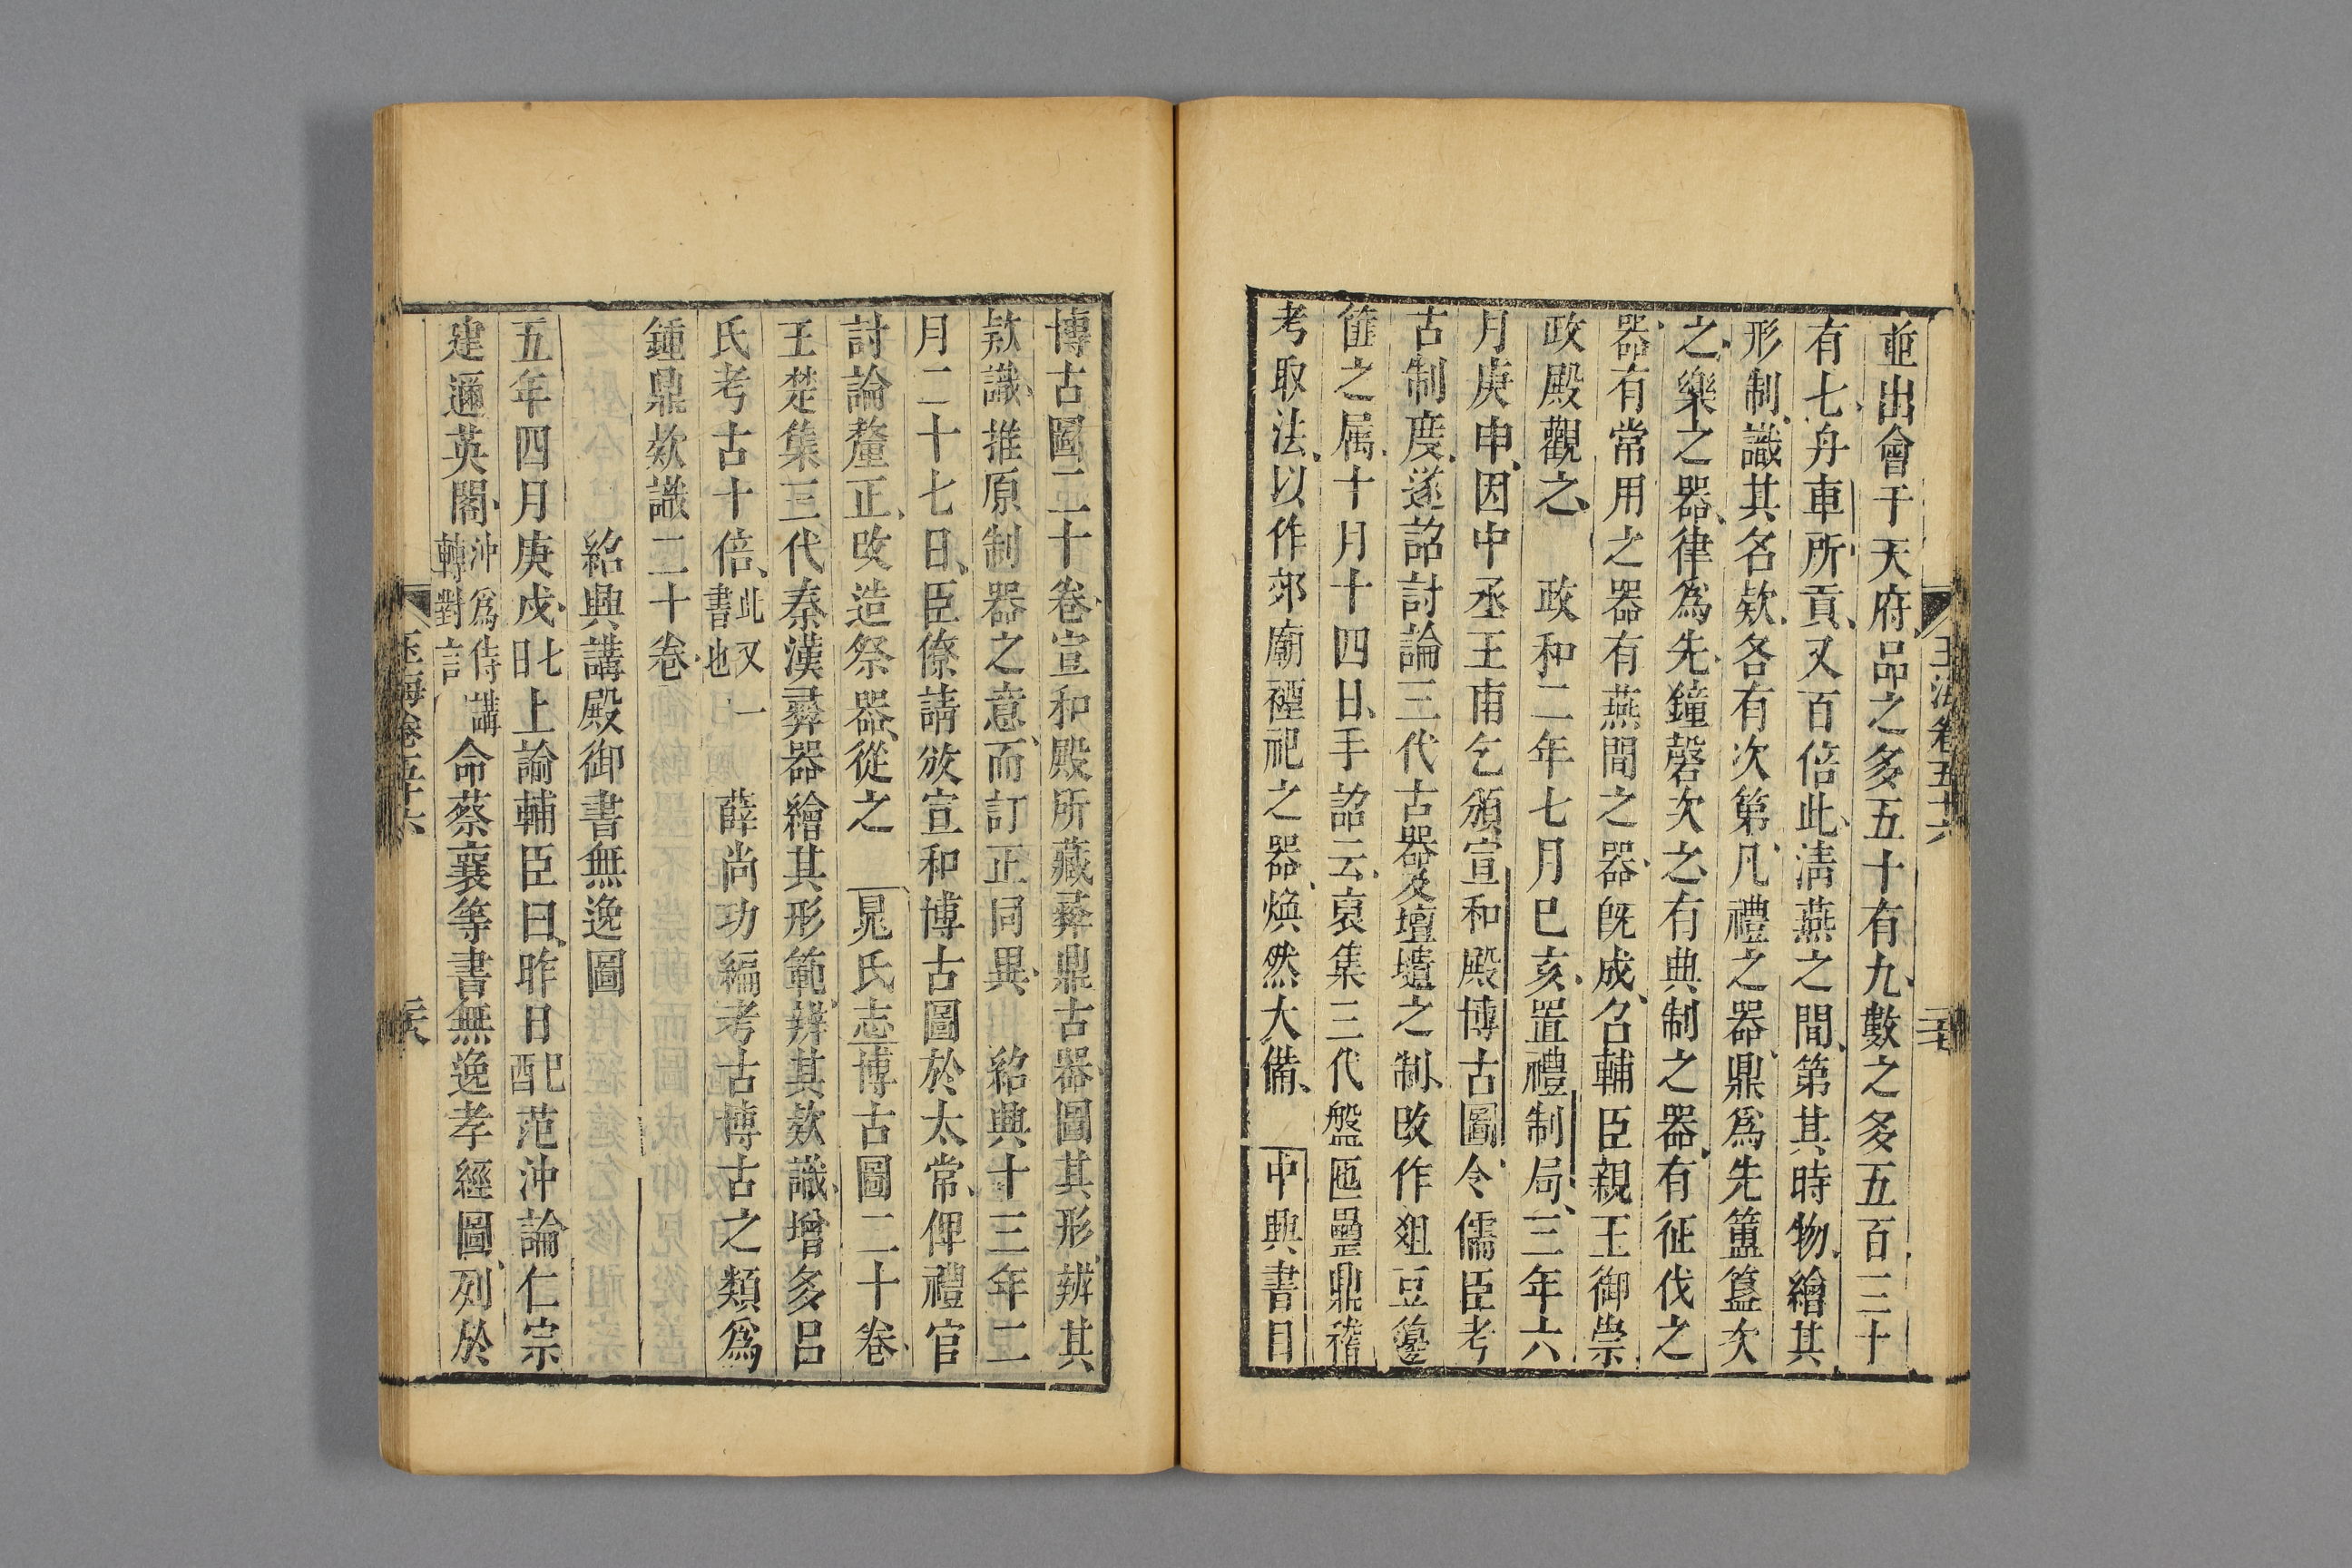 並出會于天府品之多五十有九數之多五百三十
有七舟車所貢又百倍此淸燕之間第其時物繪其
形制識其名欵各有次第凡禮之器鼎爲先簠簋次
之樂之器律爲先鐘磬次之有典制之器有征伐之
器有常用之器有燕間之器旣成名輔臣親王御崇
政殿觀之 政和二年七月巳亥置禮制局三年六
月庚申因中丞王甫乞頒宣和殿博古圖令儒臣考
古制度遂詔討論三代古器及壇壝之制改作爼豆籩
篚之属十月十四日手詔云裒集三代盤匜罍鼎稽
考取法以作郊廟禋祀之器煥然大備 中興書目
玉海卷五十六
博古圖二十卷宣和殿所藏彝鼎古器圖其形辨其
欵識推原制器之意而訂正同異 紹興十三年二
月二十七日臣僚請放宣和博古圖於太常俾禮官
討論釐正改造祭器從之 晁氏志博古圖二十卷
王楚集三代秦漢彛器繪其形範辨其欵識增多呂
氏考古十倍此又一書也 薛尚功編考古博古之類爲
鍾鼎欵識二十卷
紹興講殿御書無逸圖
五年四月庚戌七日上諭輔臣曰昨日配范沖論仁宗
建邇英閣沖爲侍講轉對言命蔡襄等書無逸孝經圖列於
玉海卷五十六